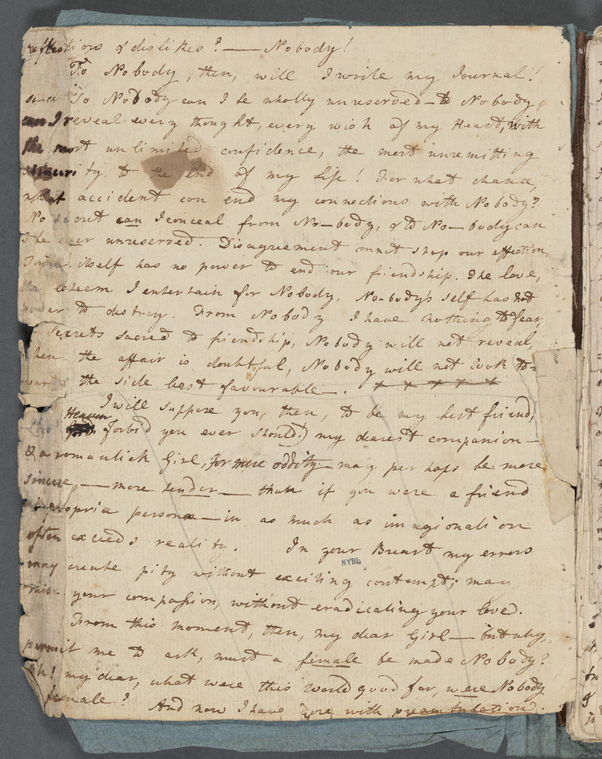 reflections & dislikes? — Nobody!
To Nobody, then, will I write my Journal!
since To Nobody can I be wholly unreserved — to Nobody
can I reveal every thought, every wish of my Heart, with
the most unlimited confidence, the most unremitting
sincerity to the end of my Life! For what chance,
what accident can end my connections with Nobody?
No secret can I conceal from No-body, & to No-body can
I be ever unreserved. Disagreement cannot stop our affection,
Time itself has no power to end our friendship. The love,
the esteem I entertain for Nobody, No-body's self has not
power to destroy. From Nobody I have nothing to fear,
Secrets sacred to friendship, Nobody will not reveal,
when the affair is doubtful, Nobody will not look to
the side least favourable.
I will suppose you, then, to be my best friend,
Heaven
forbid you ever should!) my dearest companion —
& a romantick Girl, for mere oddity — may perhaps be more
sincere, — more tender — than if you were a friend
propria persona — in as much as imagination
often exceeds reality. In your Breast my errors
may create pity without exciting contempt; may
raise your compassion, without eradicating your love.
From this moment, then, my dear Girl — but why,
permit me to ask, must a female be made Nobody?
Ah! my dear, what were this world good for, were Nobody
female? And now I have done with preambulation.
NYPL